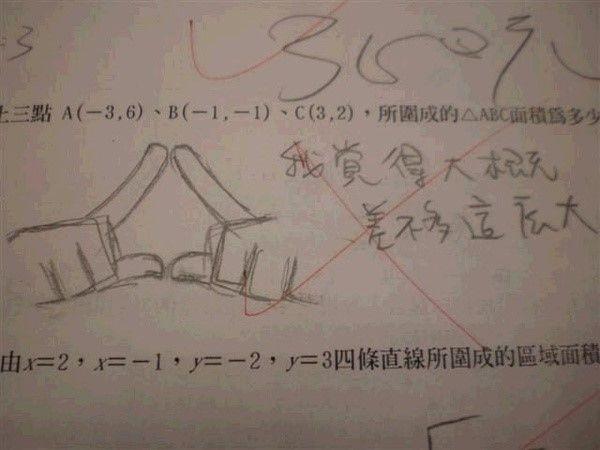 3
360元
上三點 A(-3,6)、B(-1,-1)、C(3,2),所圍成的△ABC面積為多少
我覺得大概
差不多這麼大
由x=2,x=-1,y=-2,y=3四條直線所圍成的區域面積